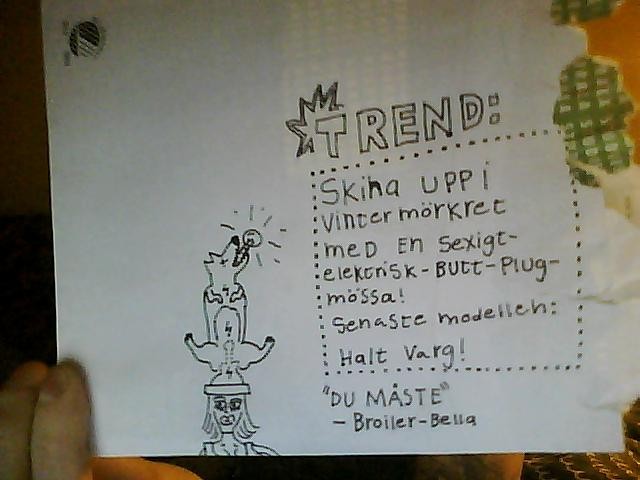 TREND:
Skina UPP i
vintermörkret
meD En Sexigt-
elektrisk-Butt-Plug-
mössa!
Senaste modellen:
Halt Varg!
"DU MÅSTE"
- Broiler-Bella